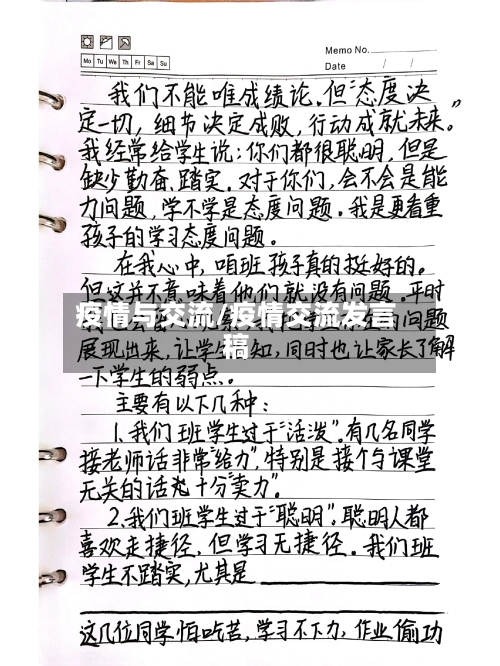 Memo No.
Mo Tu We Th Fr Sa Su
Date / /
我们不能唯成绩论。但“态度决
定一切，细节决定成败，行动成就未来。”
我经常给学生说：你们都很聪明，但是
缺少勤奋、踏实。对于你们，会不会是能
力问题，学不学是态度问题。我是更看重
孩子的学习态度问题。
在我心中，咱班孩子真的挺好的。
但这并不意味着他们就没有问题。平时
问题
疫情与交流/疫情交流发言
稿
展现出来，让学生 知，同时也让家长了解
一下学生的弱点。
主要有以下几种：
1、我们班学生过于“活泼”。有几名同学
接老师话非常“给力”，特别是接个与课堂
无关的话 十分“卖力”。
2、我们班学生过于“聪明”。聪明人都
喜欢走捷径，但学习无捷径。我们班
学生不踏实，尤其是
这几位同学怕吃苦，学习不下力，作业偷功